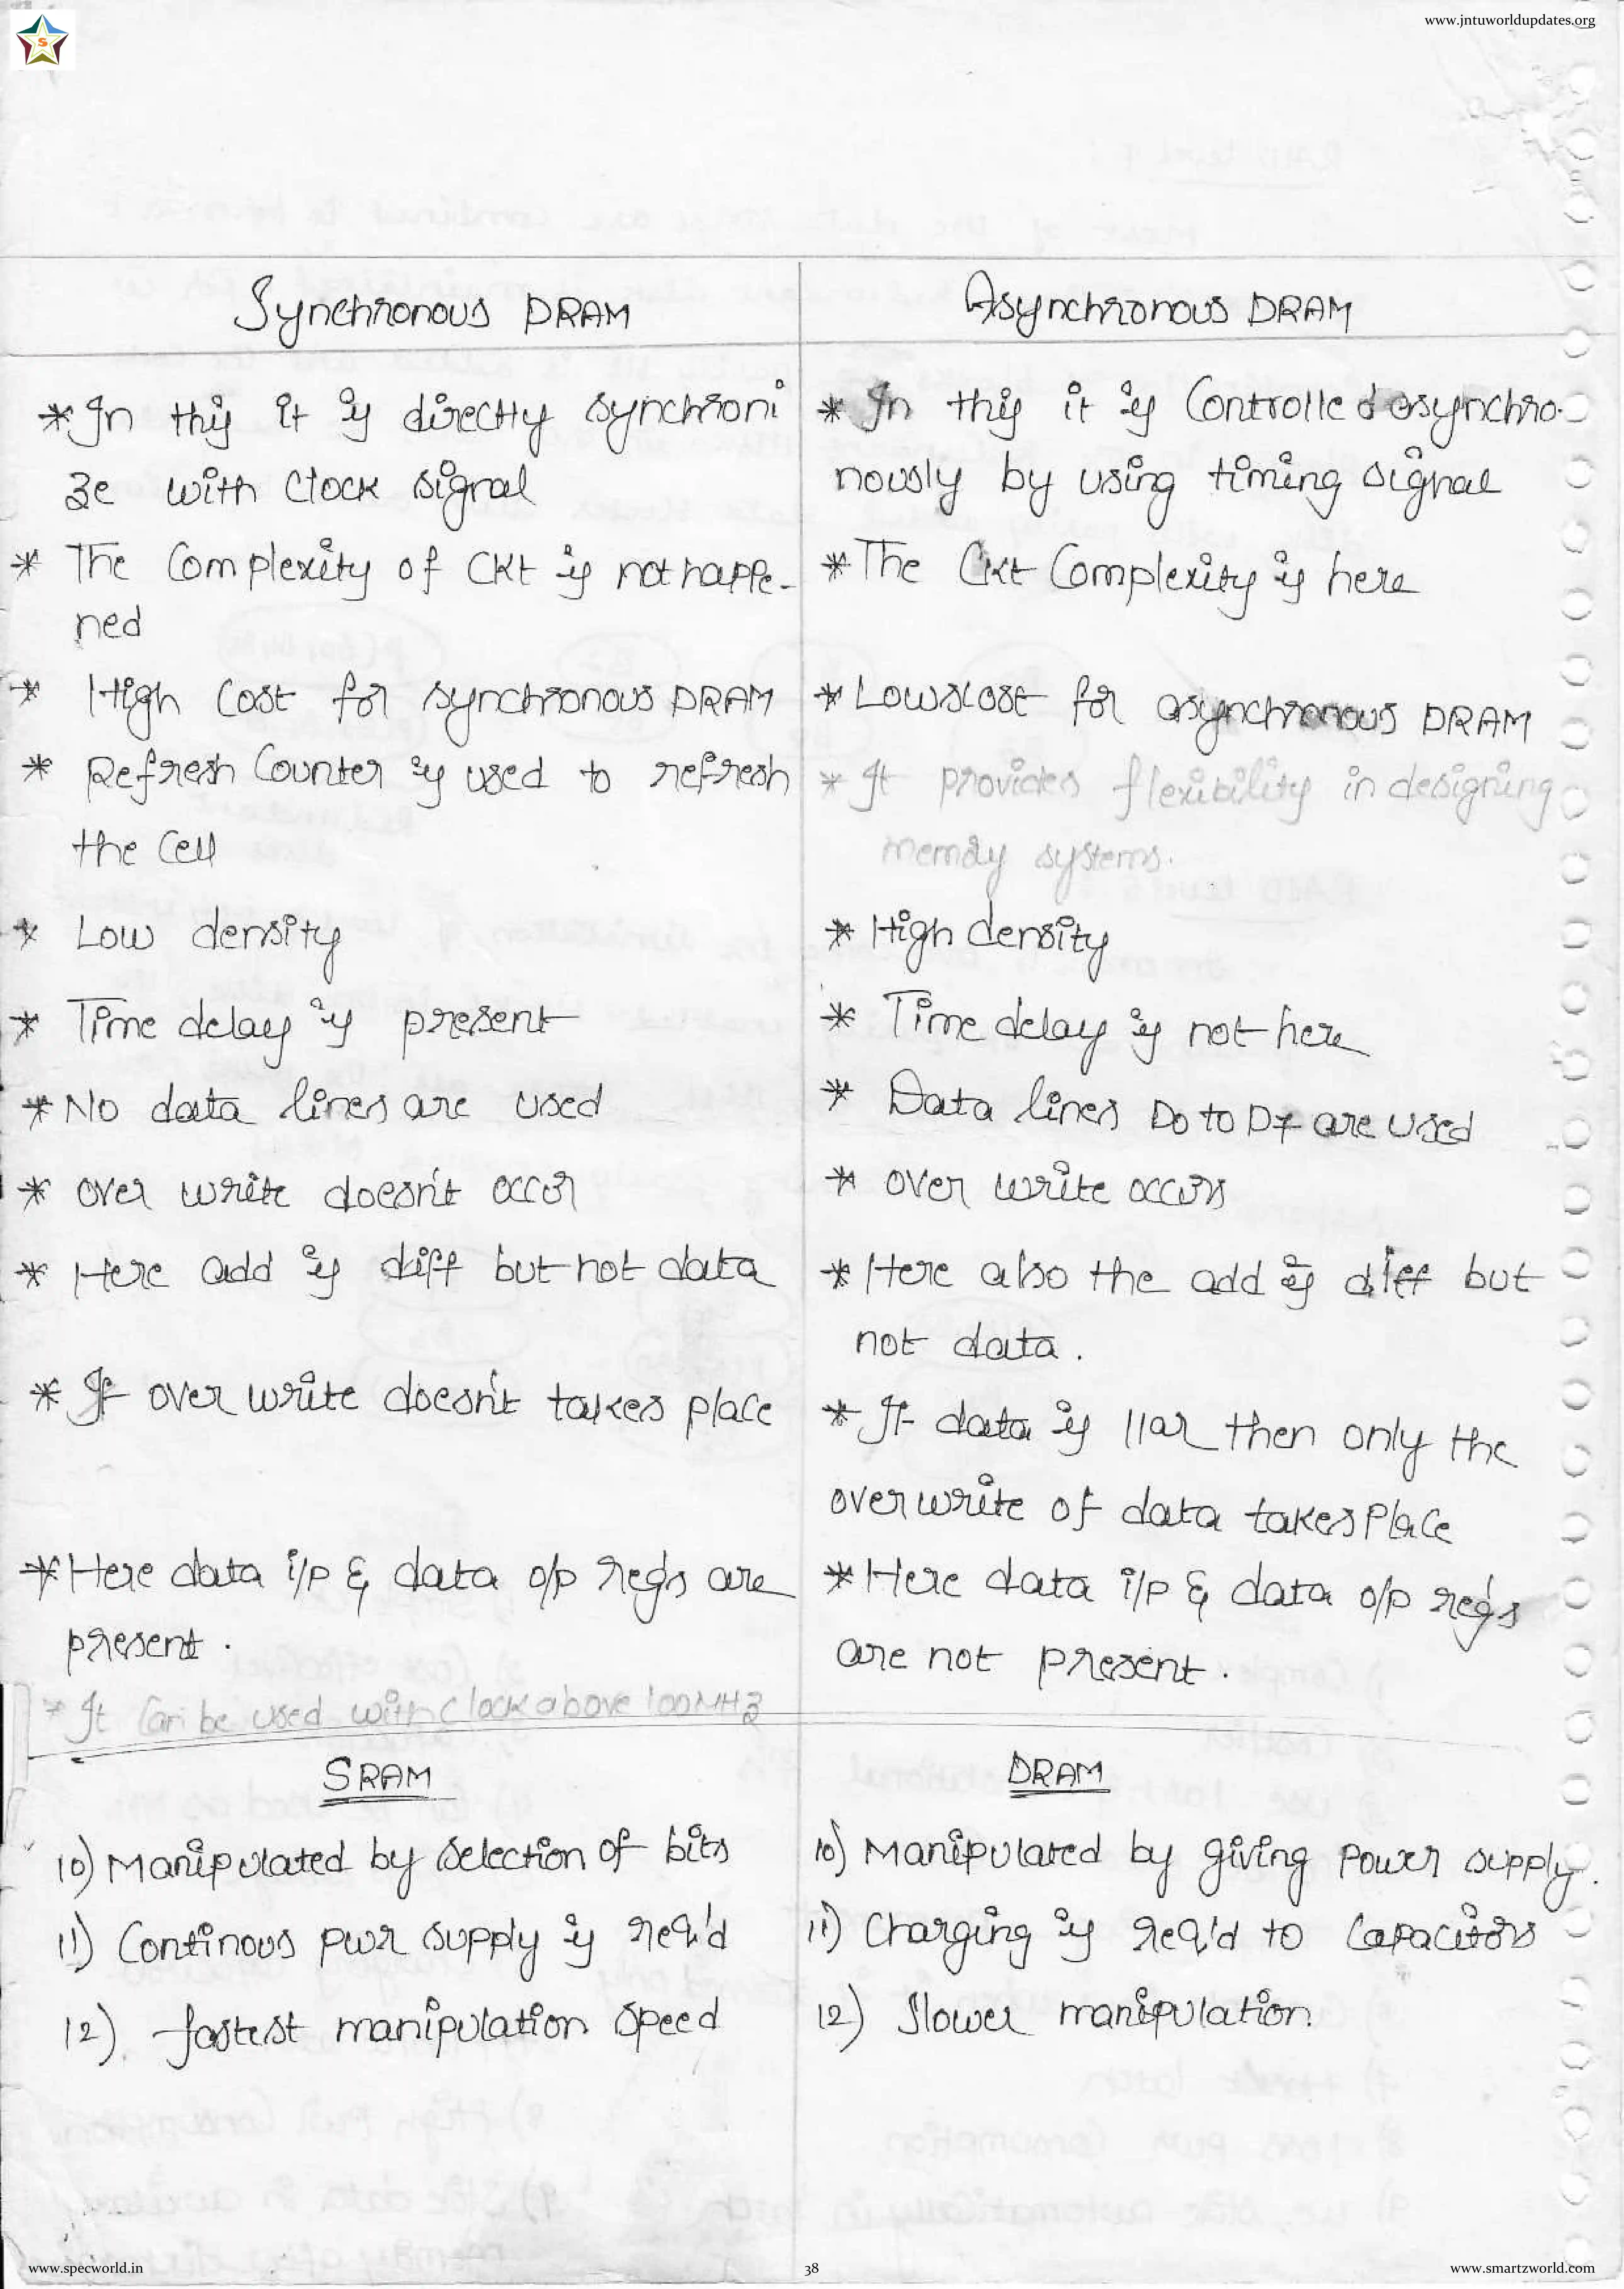 www.jntuworldupdates.org
S
Synchronous DRAM
* In this it is directly synchroni
ze with clock signal
* The Complexity of CKt is not happe-
ned
* High Cost for synchronous DRAM
* Refresh Counter is used to refresh
the Cell
* Low density
* Time delay is present
* No data lines are used
* over write doesn't occur
* Here add is diff but not data
* If over write doesn't takes place
* Here data i/p & data o/p reg's are
present.
* It Can be used with clock above 100MHz
Asynchronous DRAM
* In this it is Controlled asynchro-
nously by using timing signal
* The Ckt Complexity is here
* Lowscost for asynchronous DRAM
* It provides flexibility in designing
memory systems.
* High density
* Time delay is not here
* Data lines D0 to D7 are used
* over write occurs
* Here also the add is diff but
not data.
* If data is llar then only the
overwrite of data takes Place
* Here data i/p & data o/p reg's
are not present.
SRAM
10) Manipulated by selection of bits
11) Continous pwr supply is req'd
12) fastest manipulation speed
DRAM
10) Manipulated by giving power supply.
11) Charging is req'd to Capacitors
12) Slower manipulation.
www.specworld.in
38
www.smartzworld.com